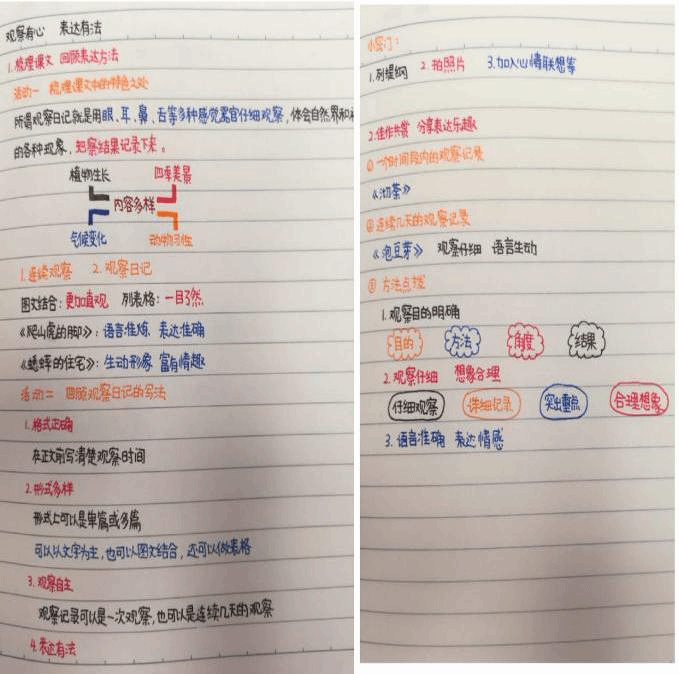 观察有心 表达有法
1.梳理课文 回顾表达方法
活动一 梳理课文中的特色之处
所谓观察日记就是用眼、耳、鼻、舌等多种感觉器官仔细观察,体会自然界和
的各种现象,把观察结果记录下来。
植物生长 四季美景
内容多样
气候变化 动物习性
1.连续观察 2.观察日记
图文结合:更加直观 列表格:一目了然
《爬山虎的脚》:语言准炼 表达准确
《蟋蟀的住宅》:生动形象 富有情趣
活动二 回顾观察日记的写法
1.格式正确
在正文前写清楚观察时间
2.形式多样
形式上可以是单篇或多篇
可以以文字为主,也可以图文结合,还可以做表格
3.观察自主
观察记录可以是一次观察,也可以是连续几天的观察
4.表达有法
小窍门:
1.列提纲 2.拍照片 3.加入心情联想等
2.佳作共赏 分享表达乐趣
① 一个时间段内的观察记录
《沏茶》
② 连续几天的观察记录
《泡豆芽》 观察仔细 语言生动
③ 方法点拨
1.观察目的明确
目的 方法 角度 结果
2.观察仔细 想象合理
仔细观察 详细记录 突出重点 合理想象
3.语言准确 表达情感